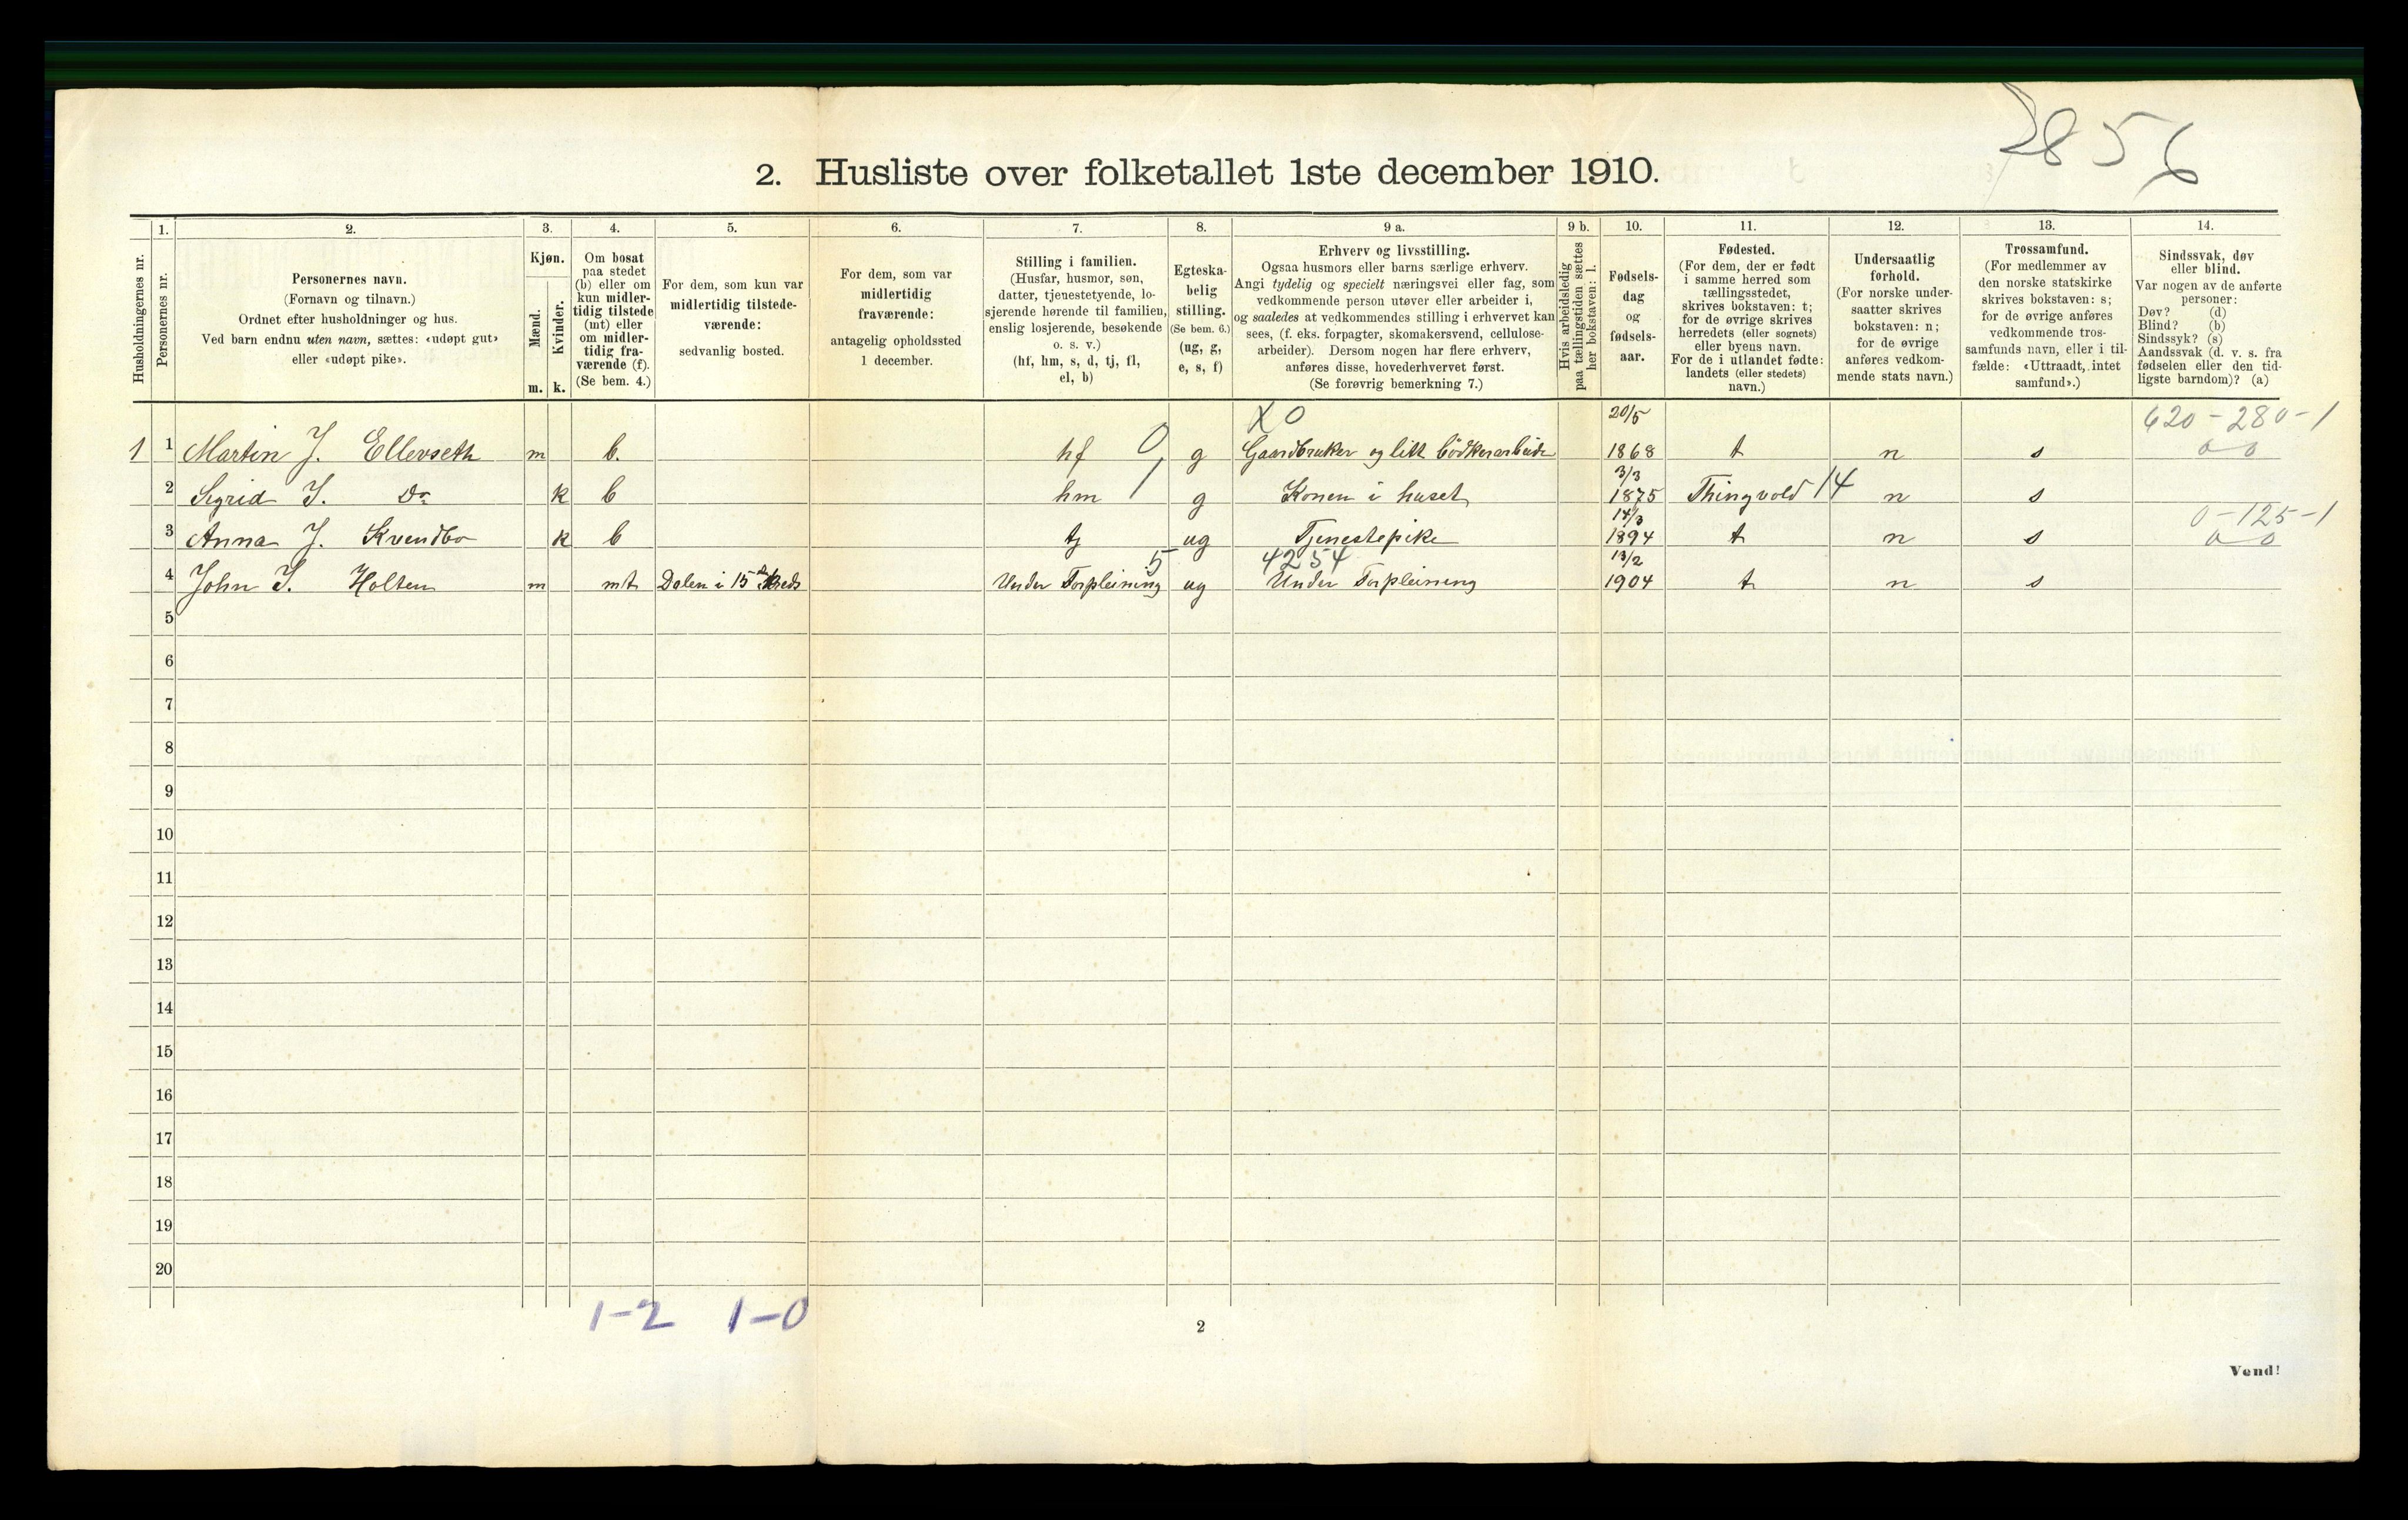 2856
2. Husliste over folketallet 1ste december 1910.
Husholdningernes nr.
1.
Personernes nr.
2.
Personernes navn.
(Fornavn og tilnavn.)
Ordnet efter husholdninger og hus.
Ved barn endnu uten navn, sættes: «udøpt gut»
eller «udøpt pike».
3.
Kjøn.
Mænd.
Kvinder.
m. k.
4.
Om bosat
paa stedet
(b) eller om
kun midler-
tidig tilstede
(mt) eller
om midler-
tidig fra-
værende (f).
(Se bem. 4.)
5.
For dem, som kun var
midlertidig tilstede-
værende:
sedvanlig bosted.
6.
For dem, som var
midlertidig
fraværende:
antagelig opholdssted
1 december.
7.
Stilling i familien.
(Husfar, husmor, søn,
datter, tjenestetyende, lo-
sjerende hørende til familien,
enslig losjerende, besøkende
o. s. v.)
(hf, hm, s, d, tj, fl,
el, b)
8.
Egteska-
belig
stilling.
(Se bem. 6.)
(ug, g,
e, s, f)
9 a.
Erhverv og livsstilling.
Ogsaa husmors eller barns særlige erhverv.
Angi tydelig og specielt næringsvei eller fag, som
vedkommende person utøver eller arbeider i,
og saaledes at vedkommendes stilling i erhvervet kan
sees, (f. eks. forpagter, skomakersvend, cellulose-
arbeider). Dersom nogen har flere erhverv,
anføres disse, hovederhvervet først.
(Se forøvrig bemerkning 7.)
9 b.
Hvis arbeidsledig
paa tællingstiden sættes
her bokstaven: l.
10.
Fødsels-
dag
og
fødsels-
aar.
11.
Fødested.
(For dem, der er født
i samme herred som
tællingsstedet,
skrives bokstaven: t;
for de øvrige skrives
herredets (eller sognets)
eller byens navn.
For de i utlandet fødte:
landets (eller stedets)
navn.)
12.
Undersaatlig
forhold.
(For norske under-
saatter skrives
bokstaven: n;
for de øvrige
anføres vedkom-
mende stats navn.)
13.
Trossamfund.
(For medlemmer av
den norske statskirke
skrives bokstaven: s;
for de øvrige anføres
vedkommende tros-
samfunds navn, eller i til-
fælde: «Uttraadt, intet
samfund».)
14.
Sindssvak, døv
eller blind.
Var nogen av de anførte
personer:
Døv? (d)
Blind? (b)
Sindssyk? (s)
Aandssvak (d. v. s. fra
fødselen eller den tid-
ligste barndom)? (a)
X0 20/5 620-280-1
1 1 Martin J. Ellevseth m b. hf 0 g Gaardbruker og litt bödkerarbeide 1868 t n s 0 0
3/3
2 Sigrid I. Do k b hm 1 g Konen i huset 1875 Thingvold 14 n s
14/3 0-125-1
3 Anna J. Kvendbo k b tj ug Tjenestepike 1894 t n s 0 0
5 4254 13/2
4 John I. Holten m mt Dalen i 15 de Kreds Under Forpleining ug Under Forpleining 1904 t n s
5
6
7
8
9
10
11
12
13
14
15
16
17
18
19
20
1-2 1-0
2
Vend!